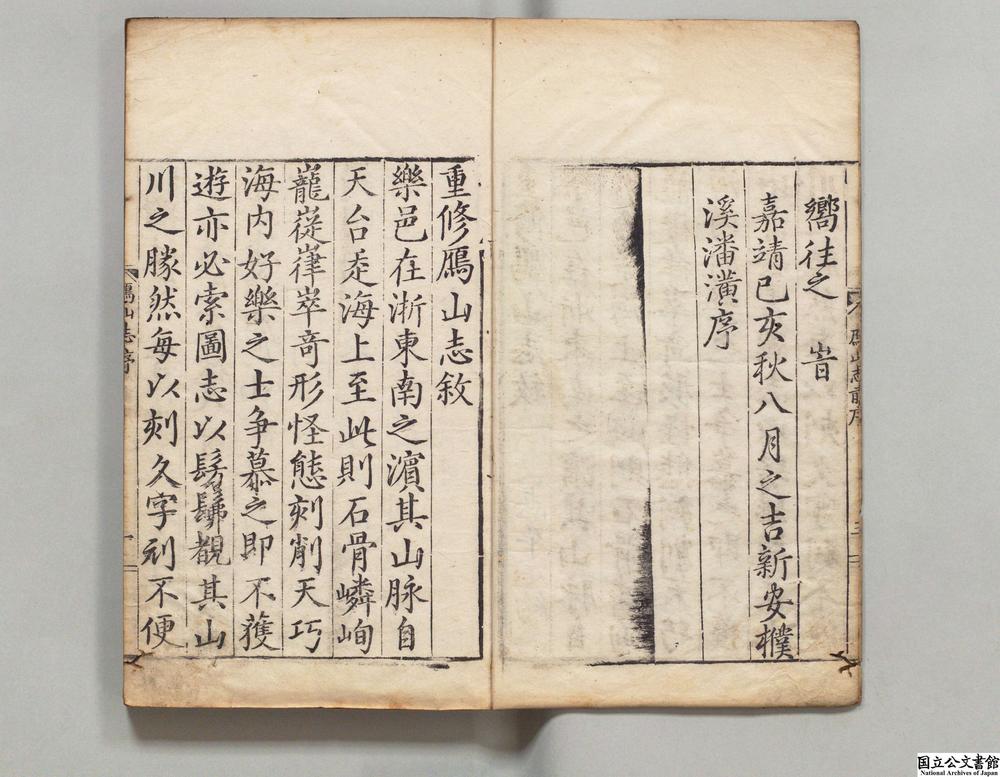 嚮往之 旹
嘉靖己亥秋八月之吉新安樸
溪潘潢序
重修鴈山志敘
樂邑在浙東南之濵其山脉自
天台走海上至此則石骨嶙峋
巃嵸嵂崒竒形怪態刻削天巧
海内好樂之士争慕之即不獲
遊亦必索圖志以髣髴覩其山
川之勝然每以刻久字刓不便
鴈山志序
国立公文書館
National Archives of Japan